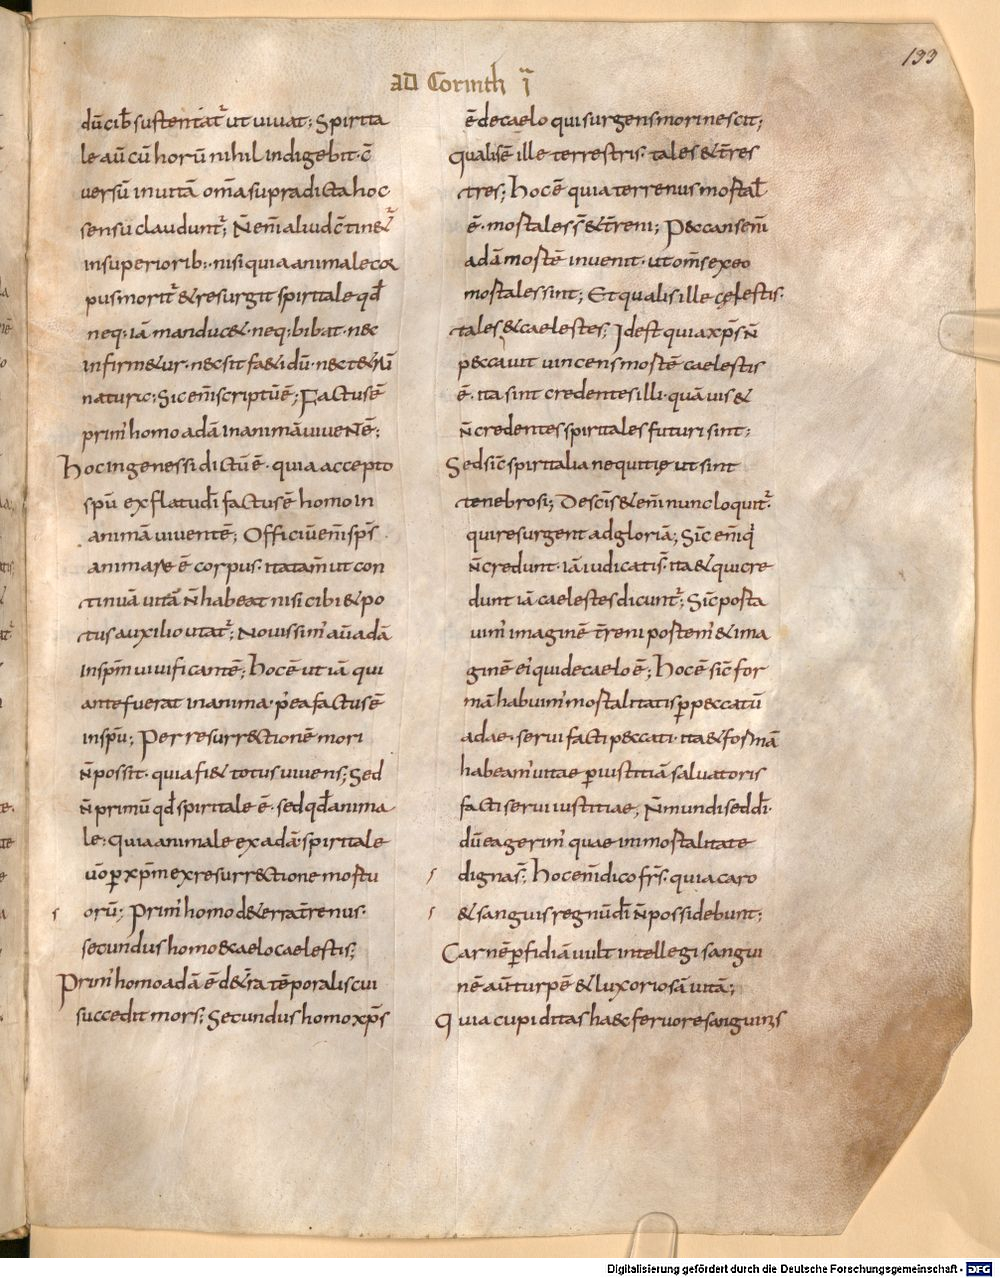 133
ad Corinth ī
dū cib̄ sustentat᷑ ut uiuat; Spirita
le aū cū horū nihil indigebit· c̄
uersū in uitā om̄a supradicta hoc
sensū claudunt᷑; N̄ em̄ aliud c̄tinet᷑
in superiorib:· nisi quia animale cor
pus morit᷑ & resurgit spiritale qd̄
neq; iā manducet· neq; bibat· nec
infirmetur· nec sitfaetidū·nec
naturie; Sic em̄ scriptū ē; Factus ē
prim' homo adā in animā uiuentē;
Hoc in genessi dictū ē· quia accepto
sp̄u ex flatu dī factus ē homo in
animā uiuentē; Officiū em̄ sp̄s
animare ē corpus· ita tam̄ ut con
tinuā uitā n̄ habeat nisi cibi & po
tus auxilio utat᷑; Nouissim' aū adā
in sp̄m uiuificantē; hoc ē ut iā qui
ante fuerat in anima· p'ea factus ē
in sp̄u; Per resurrectionē mori
n̄ possit· quia fi& totus uiuens; Sed
n̄ primū qd̄ spiritale ē· sed qd̄ anima
le; quia animale ex adā· spiritale
uō ꝑ xp̄m ex resurrectione mortu
orū; Prim' homo de terra t̄renus·
secundus homo e caelo caelestis;
Prim' homo adā ē de t̄ra tēporalis cui
succedit mors; Secundus homo xp̄s
ē de caelo qui surgens mori nescit;
qualis ē ille terrestris· tales & t̄res
tres; hoc ē quia terrenus mortal̄
ē· mortales s̄ & t̄reni; Peccans em̄
adā mortē inuenit· ut om̄s ex eo
mortales sint; Et qualis ille cęlestis·
tales & caelestes; Id est quia xp̄s n̄
peccauit uincens mortē caelestis
ē· ita sint credentes illi· quāuis &
n̄ credentes spiritales futuri sint;
Sed sic̄ spiritalia nequitię ut sint
tenebrosi; De sc̄is & em̄ nunc loquit᷑·
qui resurgent ad gloriā; Sic̄ em̄ q
n̄ credunt· iā iudicati s̄· ita & qui cre
dunt iā caelestes dicunt᷑; Sic̄ porta
uim' imaginē t̄reni portem' & ima
ginē ei' qui de caelo ē; hoc ē sic̄ for
mā habuim' mortalitatis ꝑ peccatū
adae· serui facti peccati· ita & formā
habeam' uitae ꝑ iustitiā saluatoris
facti serui iustitiae, n̄ mundi sed dī·
dū ea gerim' quae inmortalitate
digna s̄; hoc em̄ dico fr̄s· quia caro
& sanguis regnū dī n̄ possidebunt;
Carnē ꝑfidiā uult intellegi sangui
nē aūt turpē & luxoriosā uitā;
Quia cupiditas haec feruore sanguinis
Digitalisierung gefördert durch die Deutsche Forschungsgemeinschaft - DFG